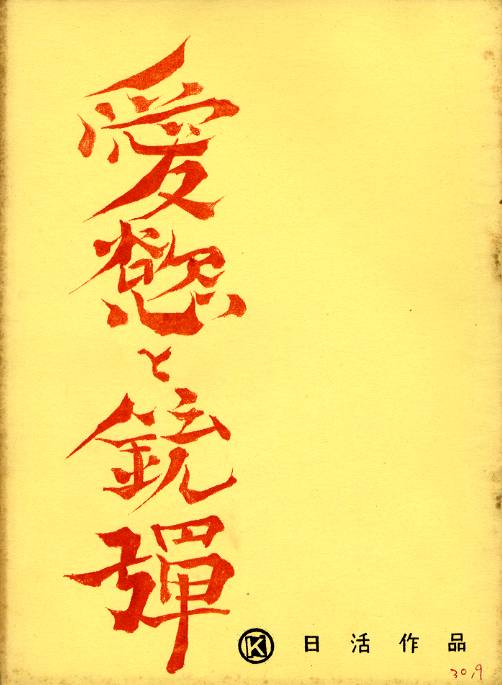 愛慾と銃彈
K 日活作品
30.9